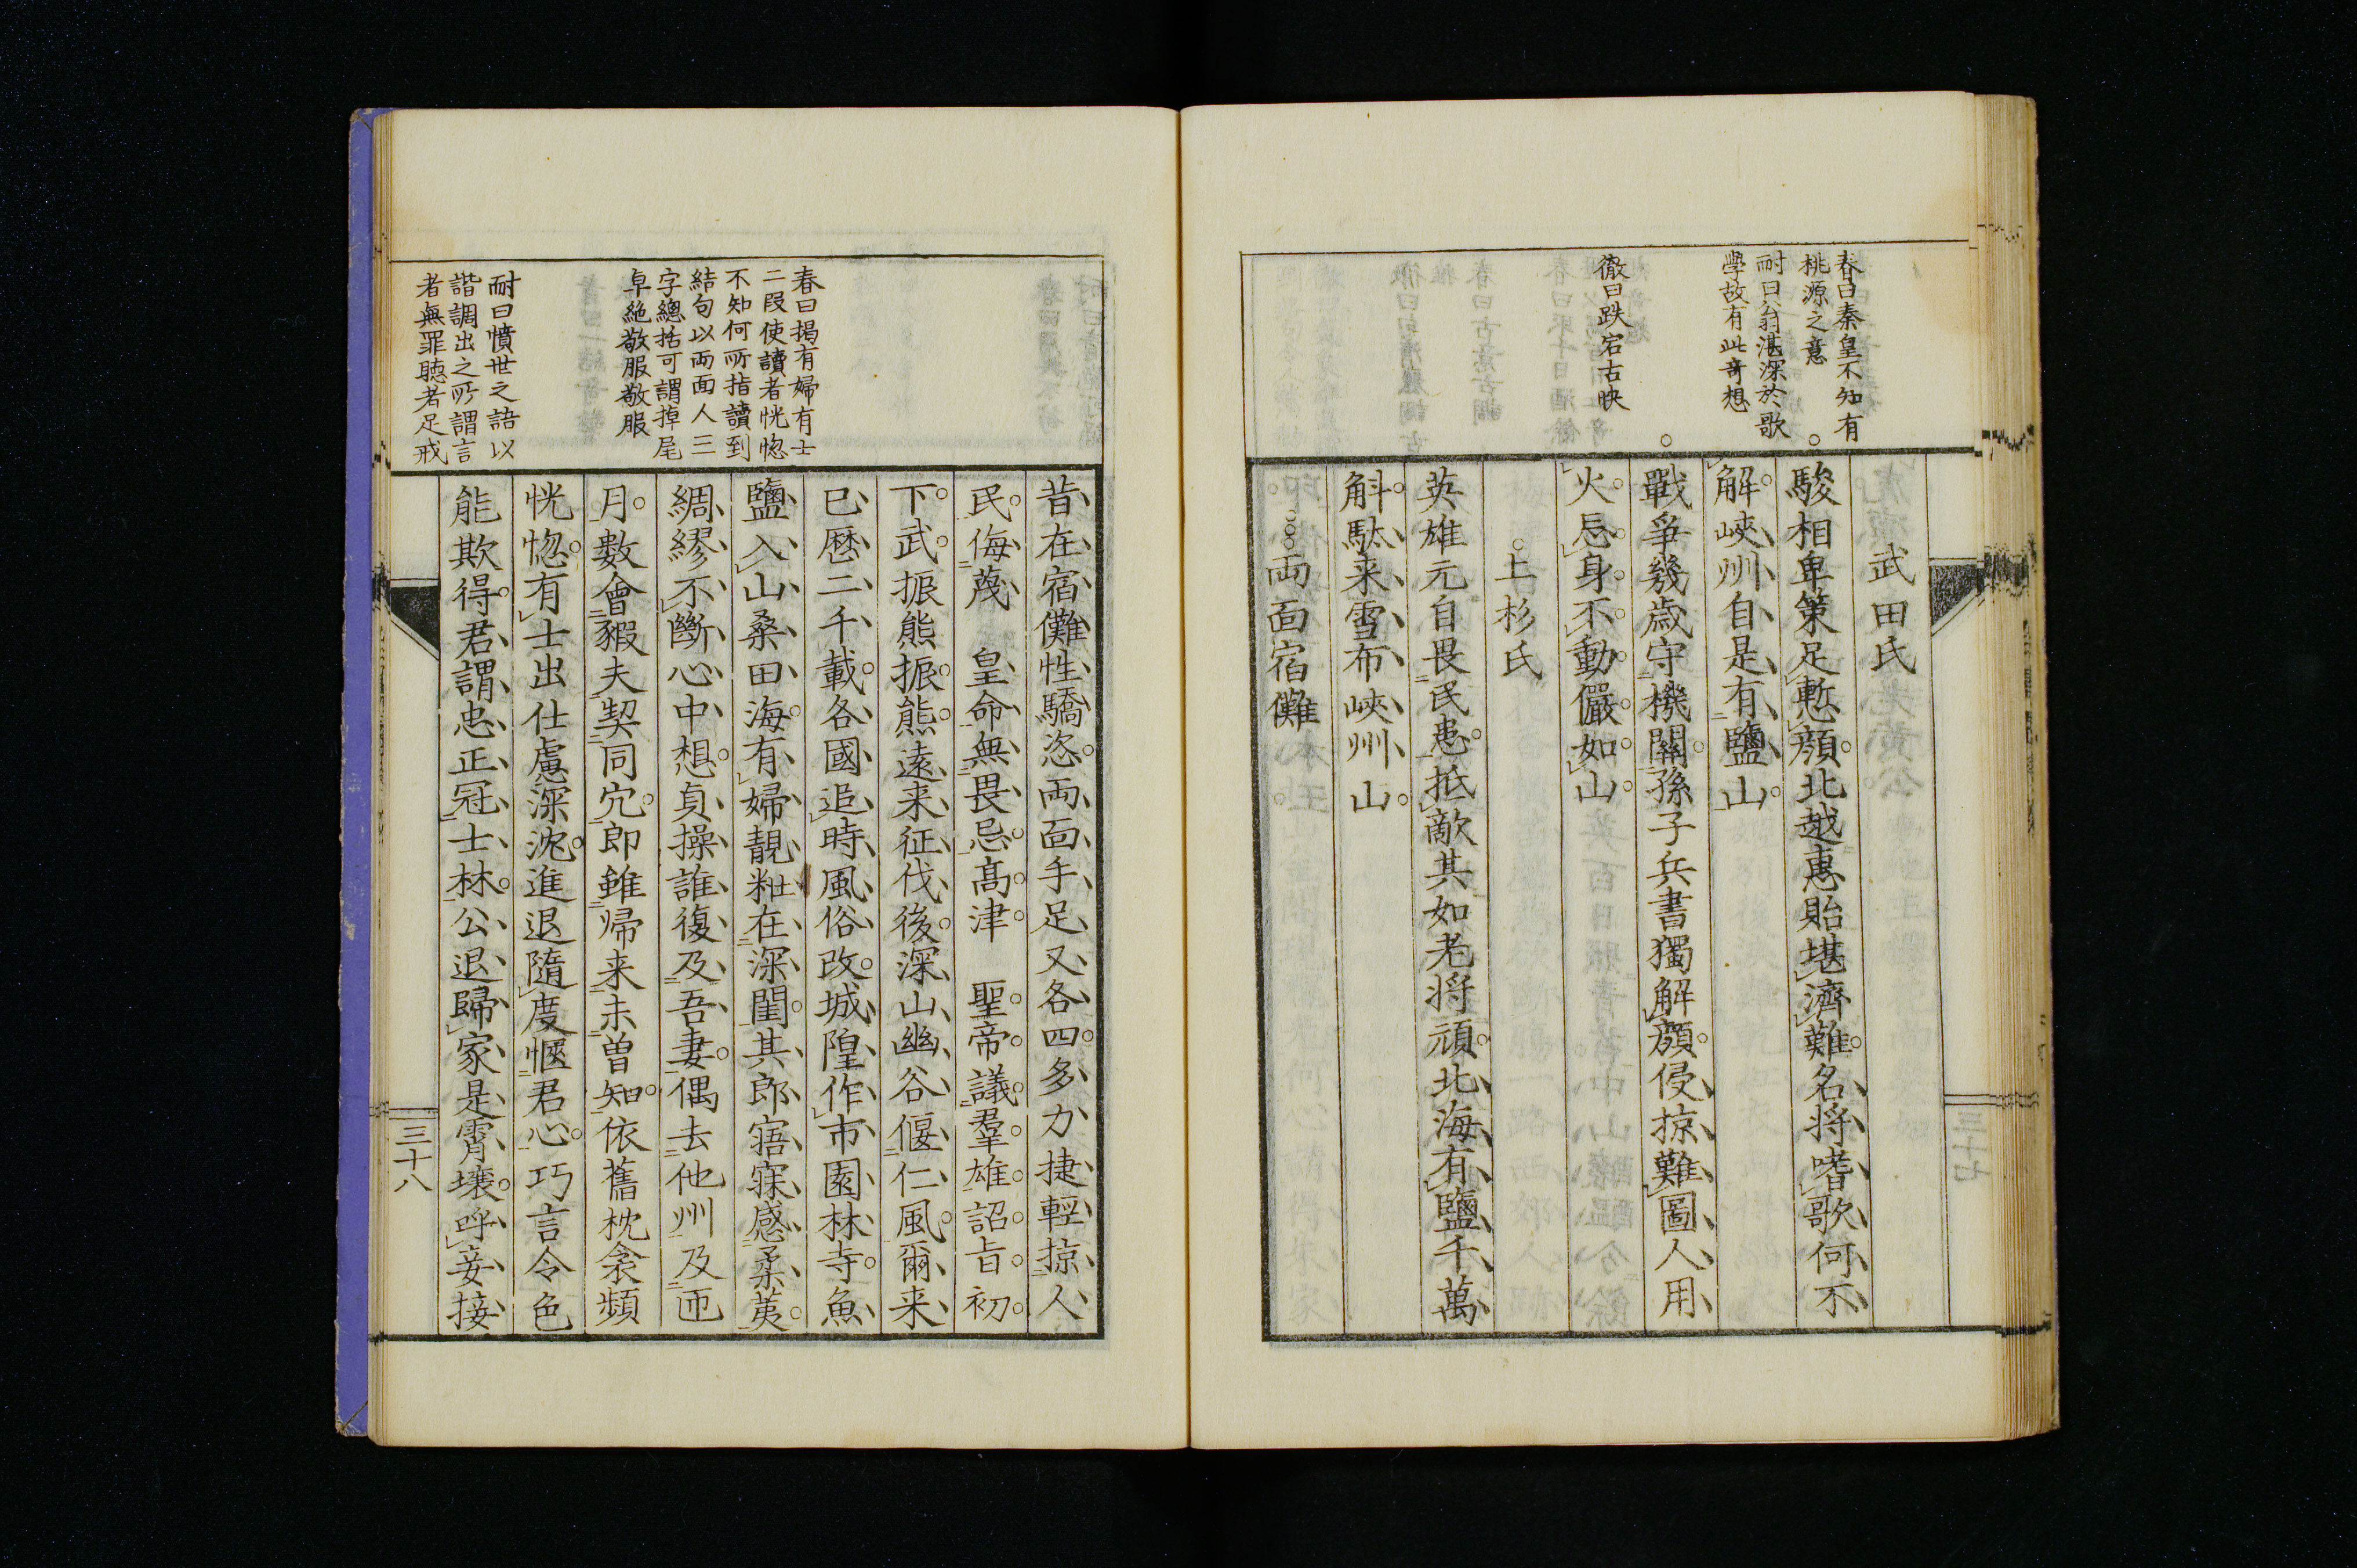 春曰秦皇不知有
桃源之意
耐曰翁湛深於歌
學故有此奇想
徹曰跌宕古快
武田氏
駿相卑策足慙顔北越惠貽堪濟難名将嗜歌何不
解峽州自是有鹽山
戰爭幾歳守機關孫子兵書獨解顔侵掠難圖人用
火忌身不動儼如山
上杉氏
英雄元自畏民患抵敵其如老将頑北海有鹽千萬
斛駄来雪布峽州山
両面宿儺
三十七
春曰揭有婦有士
二段使讀者恍惚
不知何所指讀到
結句以両面人三
字總括可謂掉尾
卓絶敬服敬服
耐曰憤世之語以
諧調出之所謂言
者無罪聴者足戒
昔在宿儺性驕恣両面手足又各四多力捷輕掠人
民侮蔑　皇命無畏忌高津　聖帝議羣雄詔㫖初
下武振熊振熊遠来征伐後深山幽谷偃仁風爾来
已歴二千載各國追時風俗改城隍作市園林寺魚
鹽入山桑田海有婦靚粧在深閨其郎寤寐感柔荑
綢繆不斷心中想貞操誰復及吾妻偶去他州及匝
月數會豭夫契同穴郎雖帰来未曽知依舊枕衾頻
恍惚有士出仕慮深沈進退隨度愜君心巧言令色
能欺得君謂忠正冠士林公退歸家是霄壌呼妾接
三十八